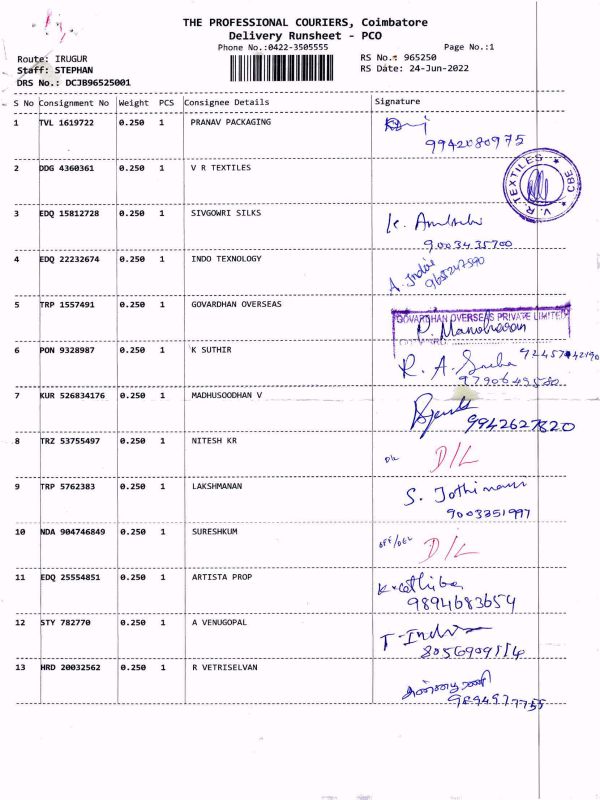 THE PROFESSIONAL COURIERS, Coimbatore
Delivery Runsheet - PCO
Phone No.:0422-3505555
Page No.:1
Route: IRUGUR
Staff: STEPHAN
DRS No.: DCJB96525001
RS No.: 965250
RS Date: 24-Jun-2022
S No Consignment No Weight PCS Consignee Details Signature
1 TVL 1619722 0.250 1 PRANAV PACKAGING
9942080975
2 DDG 4360361 0.250 1 V R TEXTILES
V.R.TEXTILES CBE
3 EDQ 15812728 0.250 1 SIVGOWRI SILKS
9003435700
4 EDQ 22232674 0.250 1 INDO TEXNOLOGY
A. Indra
5 TRP 1557491 0.250 1 GOVARDHAN OVERSEAS
GOVARDHAN OVERSEAS PRIVATE LIMITED
P. Manoharan
6 PON 9328987 0.250 1 K SUTHIR
R. A. Sucha
9790649580
7 KUR 526834176 0.250 1 MADHUSOODHAN V
9942627820
8 TRZ 53755497 0.250 1 NITESH KR
D/L D/L
9 TRP 5762383 0.250 1 LAKSHMANAN
S. Jothimani
9003351997
10 NDA 904746849 0.250 1 SURESHKUM
D/L
11 EDQ 25554851 0.250 1 ARTISTA PROP
9894683654
12 STY 782770 0.250 1 A VENUGOPAL
T-Indra
8056909114
13 HRD 20032562 0.250 1 R VETRISELVAN
9894977755